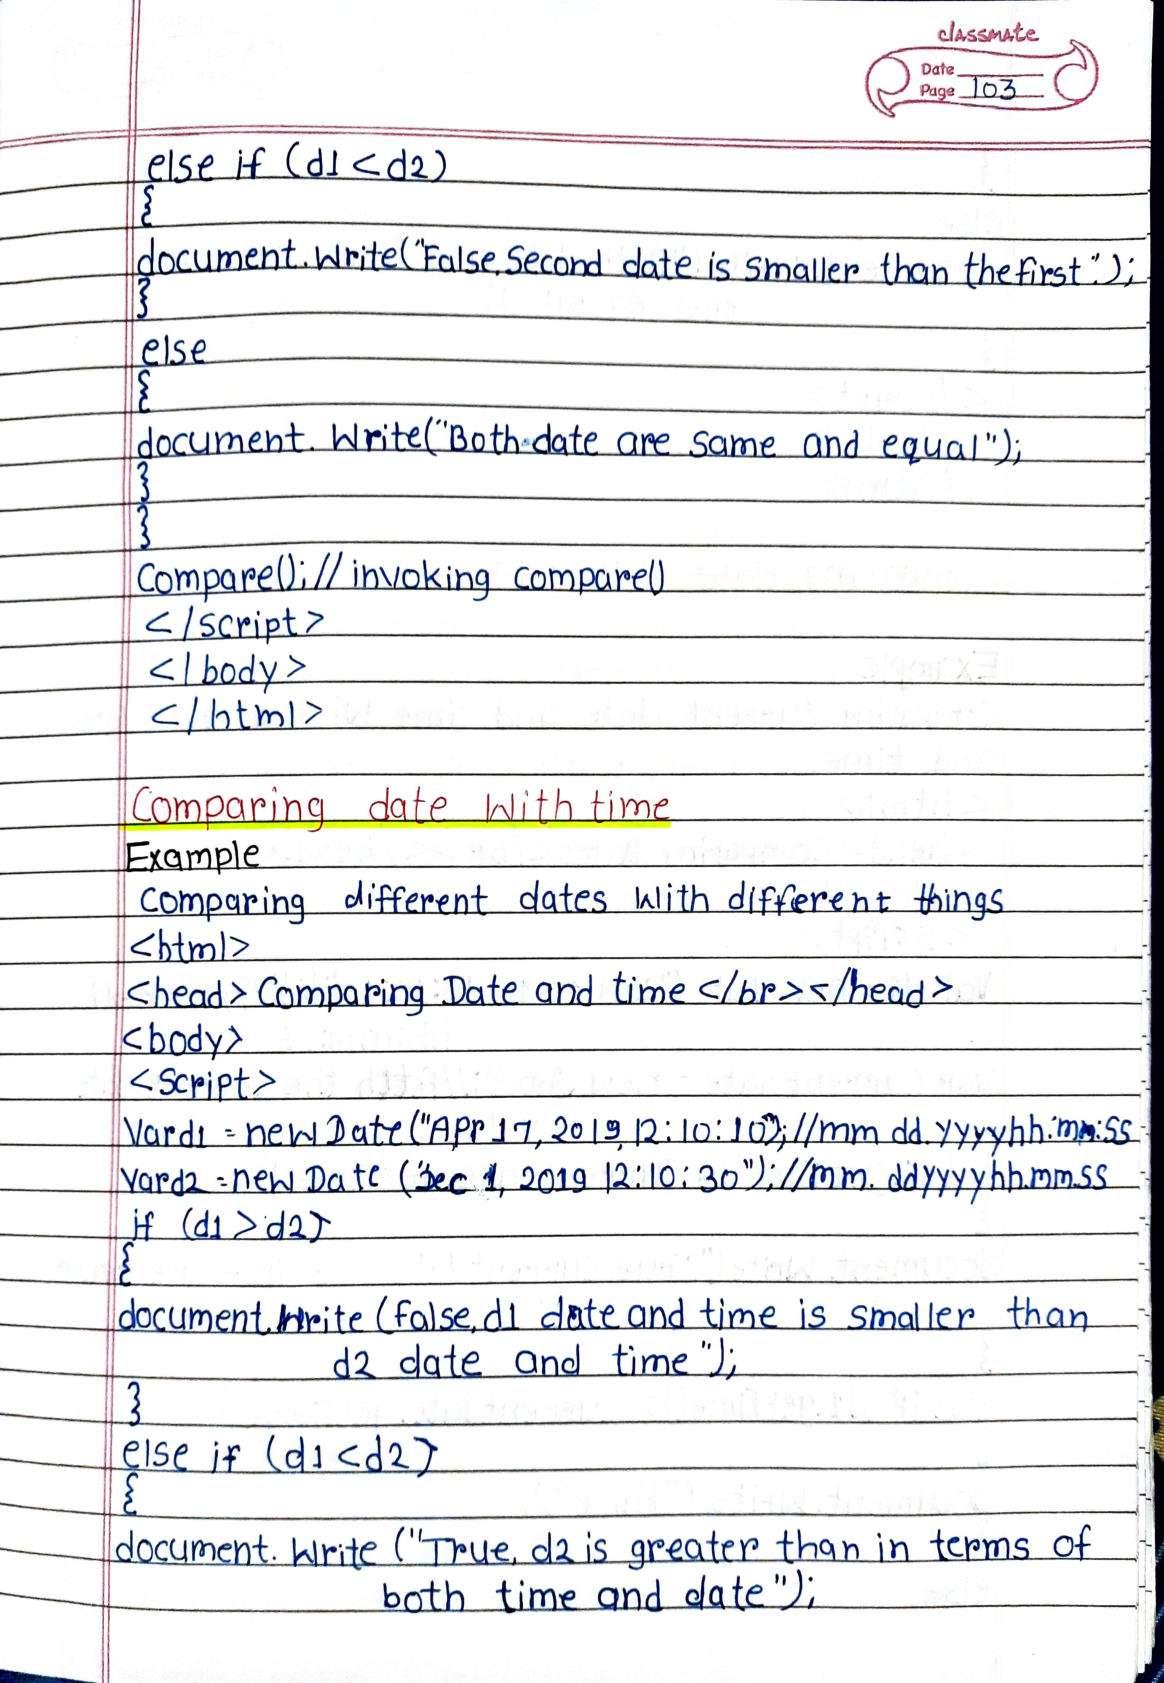 classmate
Date
Page 103
else if (d1 < d2)
{
document.Write("False, Second date is smaller than the first");
}
else
{
document. Write("Both date are same and equal");
}
}
Compare(); // invoking compare()
</script>
</body>
</html>
Comparing date With time
Example
Comparing different dates With different things
<html>
<head> Comparing Date and time </br></head>
<body>
<script>
Vard1 = new Date ("Apr 17, 2019, 12:10:10"); //mm dd. yyyyhh:mm:ss
Vard2 = new Date ("Dec 1, 2019 12:10:30"); //mm. ddyyyyhh.mm.ss
if (d1 > d2)
{
document.Write (false, d1 date and time is smaller than
d2 date and time");
}
else if (d1 < d2)
{
document. Write ("True, d2 is greater than in terms of
both time and date");